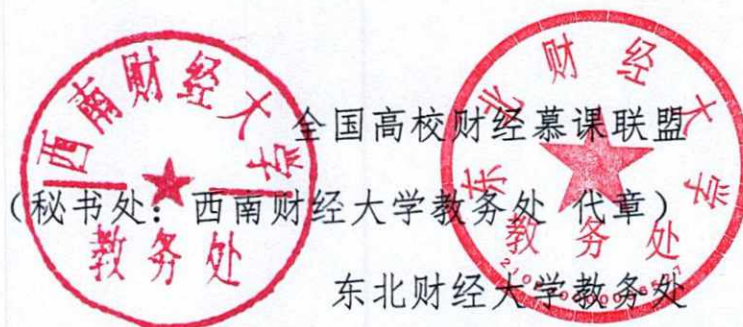 西南财经大学
教务处
东北财经大学
教务处
全国高校财经慕课联盟
（秘书处：西南财经大学教务处 代章）
东北财经大学教务处